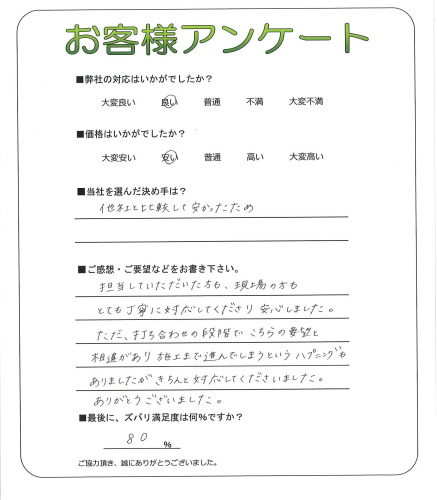 お客様アンケート
■弊社の対応はいかがでしたか？
大変良い 良い 普通 不満 大変不満
■価格はいかがでしたか？
大変安い 安い 普通 高い 大変高い
■当社を選んだ決め手は？
他社と比較して安かったため
■ご感想・ご要望などをお書き下さい。
担当していただいた方も、現場の方も
とても丁寧に対応してくださり安心しました。
ただ、打ち合わせの段階でこちらの要望と
相違があり施工まで進んでしまうというハプニングも
ありましたがきちんと対応してくださいました。
ありがとうございました。
■最後に、ズバリ満足度は何％ですか？
80 ％
ご協力頂き、誠にありがとうございました。